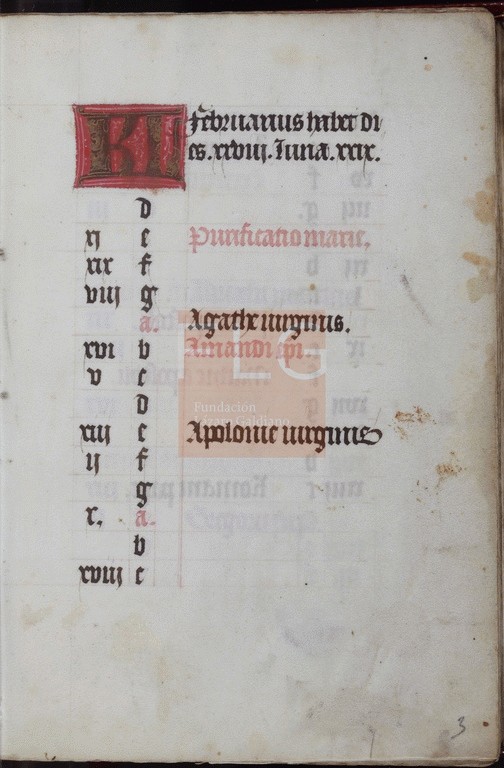 KL februarius habet di
es. xxviij. luna. xxix.
d
xj e purificatio marie.
xix f
viij g
a. Agathe uirginis.
xvi b Amandi epi.
v c
d
xiij e Apolonie uirginis
ij f
g
x. a.
b
xviij c
FLG
Fundación
Lázaro Galdiano
3